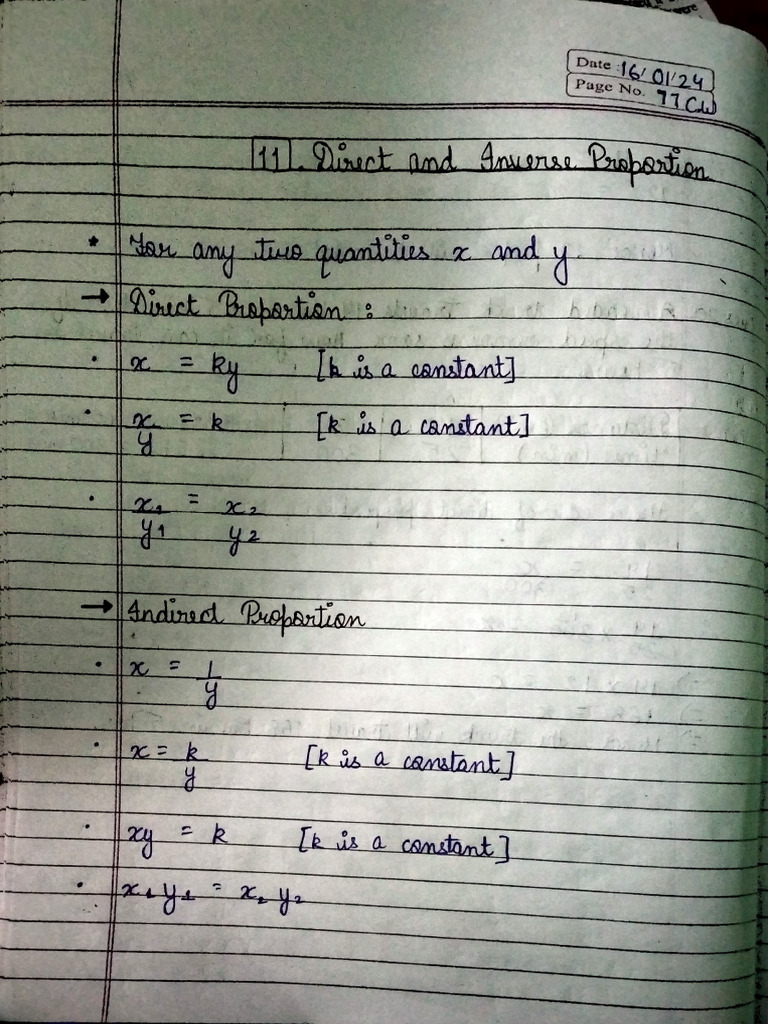 Date : 16/01/24
Page No. 77 CW
11. Direct and Inverse Proportion
* For any two quantities x and y
→ Direct Proportion :
· x = ky [k is a constant]
· x/y = k [k is a constant]
· x₁/y₁ = x₂/y₂
→ Indirect Proportion
· x = 1/y
· x = k/y [k is a constant]
· xy = k [k is a constant]
· x₁y₁ = x₂y₂